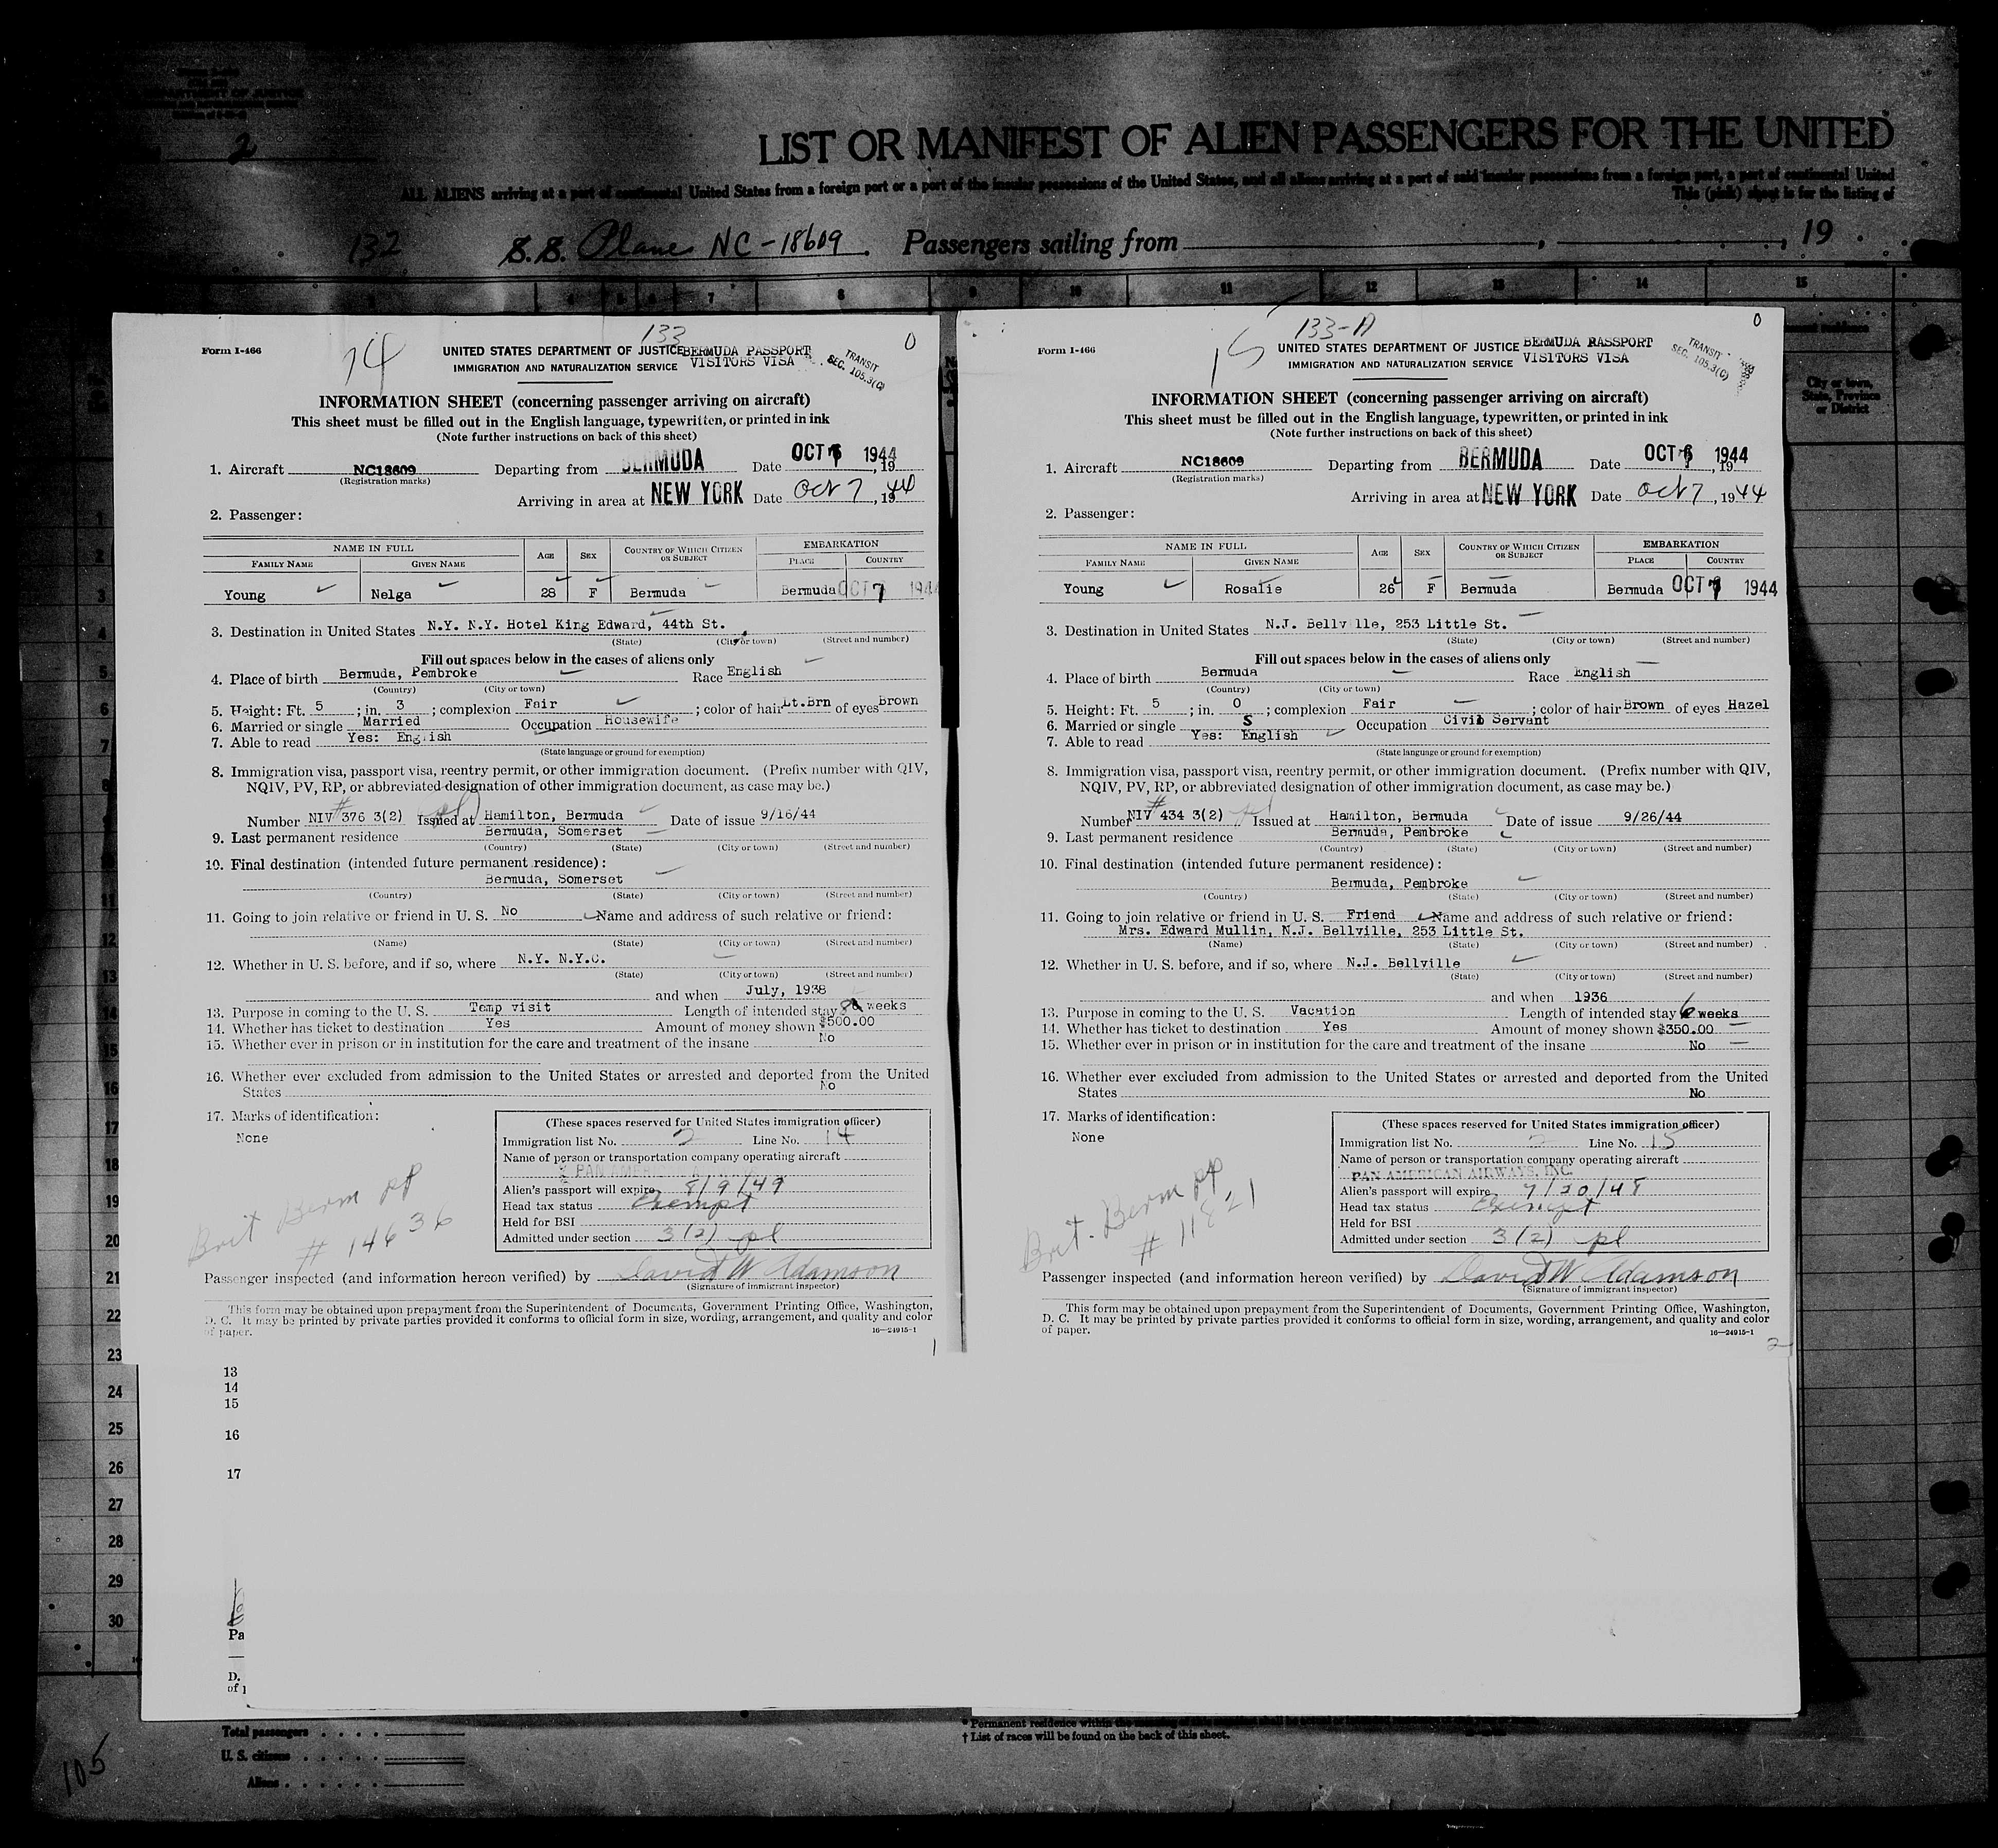 DEPARTMENT OF JUSTICE
2
LIST OR MANIFEST OF ALIEN PASSENGERS FOR THE UNITED
ALL ALIENS arriving at a port of continental United States from a foreign port or a port of the insular possessions of the United States, and all aliens arriving at a port of said insular possessions from a foreign port, a port of continental United
This (pink) sheet is for the listing of
132 S.S. Plane NC-18609 Passengers sailing from , , 19
3 4 5 6 7 8 9 10 11 12 13 14 15
City or town, State, Province or District
Form I-466
14
133
0
UNITED STATES DEPARTMENT OF JUSTICE BERMUDA PASSPORT
IMMIGRATION AND NATURALIZATION SERVICE VISITORS VISA
TRANSIT
SEC. 105.3(C)
INFORMATION SHEET (concerning passenger arriving on aircraft)
This sheet must be filled out in the English language, typewritten, or printed in ink
(Note further instructions on back of this sheet)
1. Aircraft NC18609 Departing from BERMUDA Date OCT 1944, 19
(Registration marks)
Arriving in area at NEW YORK Date Oct 7, 1944
2. Passenger:
NAME IN FULL AGE SEX COUNTRY OF WHICH CITIZEN OR SUBJECT EMBARKATION
FAMILY NAME GIVEN NAME PLACE COUNTRY
Young Nelga 28 F Bermuda Bermuda OCT 7 1944
3. Destination in United States N.Y. N.Y. Hotel King Edward, 44th St.
(State) (City or town) (Street and number)
Fill out spaces below in the cases of aliens only
4. Place of birth Bermuda, Pembroke Race English
(Country) (City or town)
5. Height: Ft. 5 ; in. 3 ; complexion Fair ; color of hair Lt.Brn of eyes Brown
6. Married or single Married Occupation Housewife
7. Able to read Yes: English
(State language or ground for exemption)
8. Immigration visa, passport visa, reentry permit, or other immigration document. (Prefix number with QIV,
NQIV, PV, RP, or abbreviated designation of other immigration document, as case may be.)
Number NIV # 376 3(2) Issued at Hamilton, Bermuda Date of issue 9/16/44
9. Last permanent residence Bermuda, Somerset
(Country) (State) (City or town) (Street and number)
10. Final destination (intended future permanent residence):
Bermuda, Somerset
(Country) (State) (City or town) (Street and number)
11. Going to join relative or friend in U. S. No Name and address of such relative or friend:
(Name) (State) (City or town) (Street and number)
12. Whether in U. S. before, and if so, where N.Y. N.Y.C.
(State) (City or town) (Street and number)
and when July, 1938
13. Purpose in coming to the U. S. Temp visit Length of intended stay 8 weeks
14. Whether has ticket to destination Yes Amount of money shown $500.00
15. Whether ever in prison or in institution for the care and treatment of the insane No
16. Whether ever excluded from admission to the United States or arrested and deported from the United
States No
17. Marks of identification:
None
Brit Berm pp
# 14636
(These spaces reserved for United States immigration officer)
Immigration list No. 2 Line No. 14
Name of person or transportation company operating aircraft
PAN AMERICAN
Alien's passport will expire 8/9/49
Head tax status Exempt
Held for BSI
Admitted under section 3(2) pl
Passenger inspected (and information hereon verified) by David W Adamson
(Signature of immigrant inspector)
This form may be obtained upon prepayment from the Superintendent of Documents, Government Printing Office, Washington,
D. C. It may be printed by private parties provided it conforms to official form in size, wording, arrangement, and quality and color
of paper.
16—24915-1
1
Form I-466
15
133-A
0
UNITED STATES DEPARTMENT OF JUSTICE BERMUDA PASSPORT
IMMIGRATION AND NATURALIZATION SERVICE VISITORS VISA
TRANSIT
SEC. 105.3(C)
INFORMATION SHEET (concerning passenger arriving on aircraft)
This sheet must be filled out in the English language, typewritten, or printed in ink
(Note further instructions on back of this sheet)
1. Aircraft NC18609 Departing from BERMUDA Date OCT 1944, 19
(Registration marks)
Arriving in area at NEW YORK Date Oct 7, 1944
2. Passenger:
NAME IN FULL AGE SEX COUNTRY OF WHICH CITIZEN OR SUBJECT EMBARKATION
FAMILY NAME GIVEN NAME PLACE COUNTRY
Young Rosalie 26 F Bermuda Bermuda OCT 7 1944
3. Destination in United States N.J. Bellv lle, 253 Little St.
(State) (City or town) (Street and number)
Fill out spaces below in the cases of aliens only
4. Place of birth Bermuda Race English
(Country) (City or town)
5. Height: Ft. 5 ; in. 0 ; complexion Fair ; color of hair Brown of eyes Hazel
6. Married or single S Occupation Civil Servant
7. Able to read Yes: English
(State language or ground for exemption)
8. Immigration visa, passport visa, reentry permit, or other immigration document. (Prefix number with QIV,
NQIV, PV, RP, or abbreviated designation of other immigration document, as case may be.)
Number NIV # 434 3(2) Issued at Hamilton, Bermuda Date of issue 9/26/44
9. Last permanent residence Bermuda, Pembroke
(Country) (State) (City or town) (Street and number)
10. Final destination (intended future permanent residence):
Bermuda, Pembroke
(Country) (State) (City or town) (Street and number)
11. Going to join relative or friend in U. S. Friend Name and address of such relative or friend:
Mrs. Edward Mullin, N.J. Bellville, 253 Little St.
(Name) (State) (City or town) (Street and number)
12. Whether in U. S. before, and if so, where N.J. Bellville
(State) (City or town) (Street and number)
and when 1936
13. Purpose in coming to the U. S. Vacation Length of intended stay 6 weeks
14. Whether has ticket to destination Yes Amount of money shown $350.00
15. Whether ever in prison or in institution for the care and treatment of the insane No
16. Whether ever excluded from admission to the United States or arrested and deported from the United
States No
17. Marks of identification:
None
Brit. Berm pp
# 11821
(These spaces reserved for United States immigration officer)
Immigration list No. 2 Line No. 15
Name of person or transportation company operating aircraft
PAN AMERICAN AIRWAYS, INC.
Alien's passport will expire 7/20/48
Head tax status Exempt
Held for BSI
Admitted under section 3(2) pl
Passenger inspected (and information hereon verified) by David W Adamson
(Signature of immigrant inspector)
This form may be obtained upon prepayment from the Superintendent of Documents, Government Printing Office, Washington,
D. C. It may be printed by private parties provided it conforms to official form in size, wording, arrangement, and quality and color
of paper.
16—24915-1
2
1
2
3
4
5
6
7
8
9
10
11
12
13
14
15
16
17
18
19
20
21
22
23
24
25
26
27
28
29
30
13
14
15
16
17
Pa
D.
of
Total passengers
U. S. citizens
Aliens
* Permanent residence within the
† List of races will be found on the back of this sheet.
105